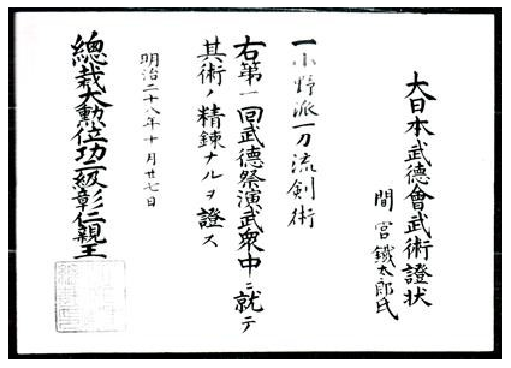 大日本武德會武術證状
間宮鐵太郎氏
一小野派一刀流剣術
右第一回武德祭演武衆中ニ就テ
其術ノ精錬ナルヲ證ス
明治二十八年十月廿七日
總裁大勲位功二級彰仁親王